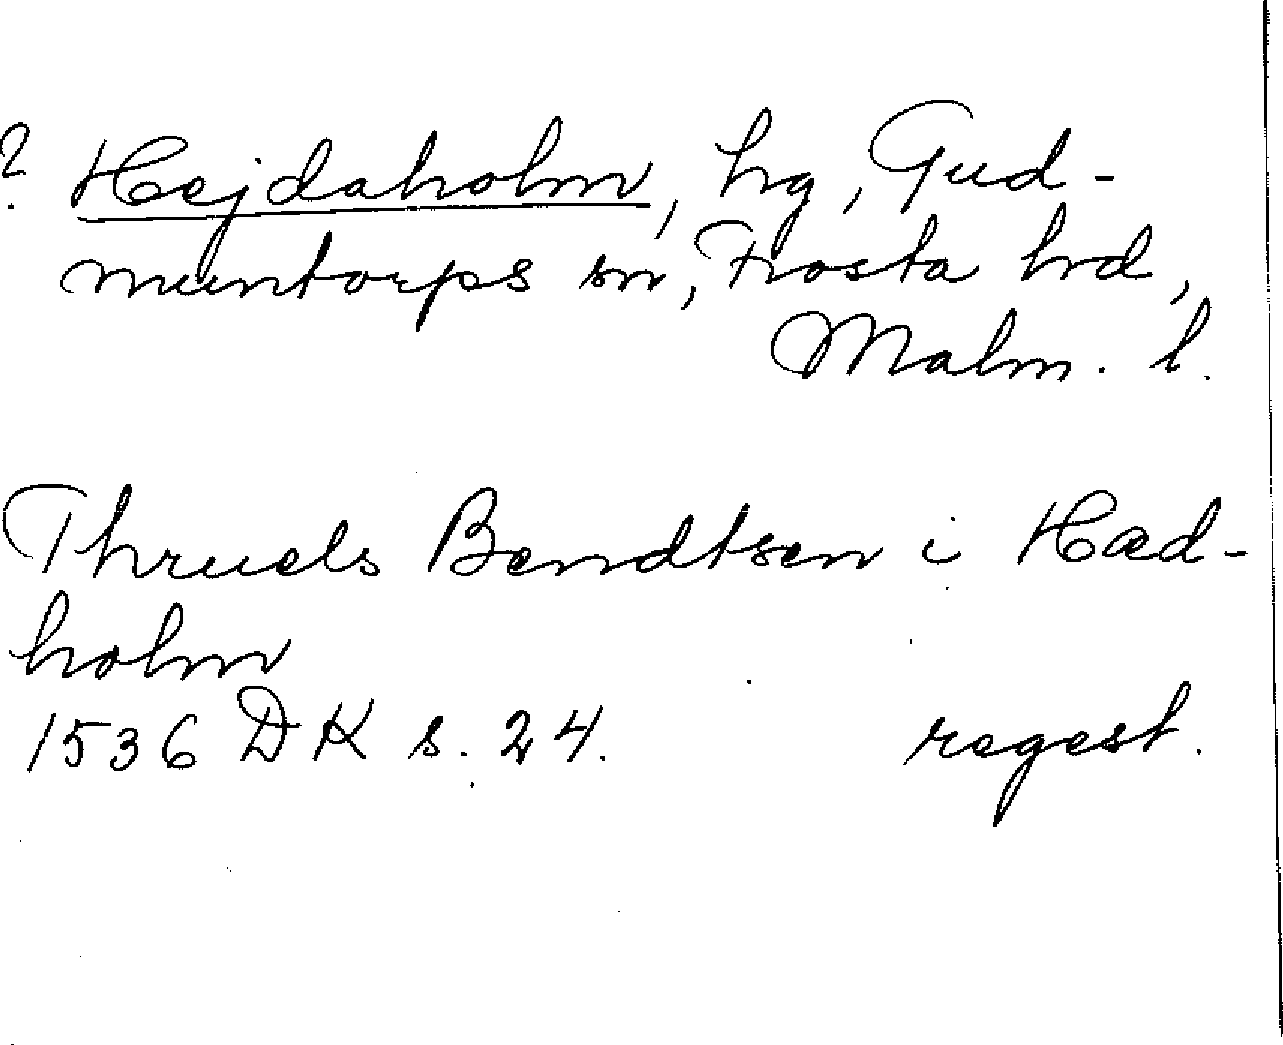 ? Hejdaholm, hg, Gud-
muntorps sn, Frosta hd,
Malm. l.
Thruels Bendtsen i Hæd-
holm
1536 DK s. 24. regest.